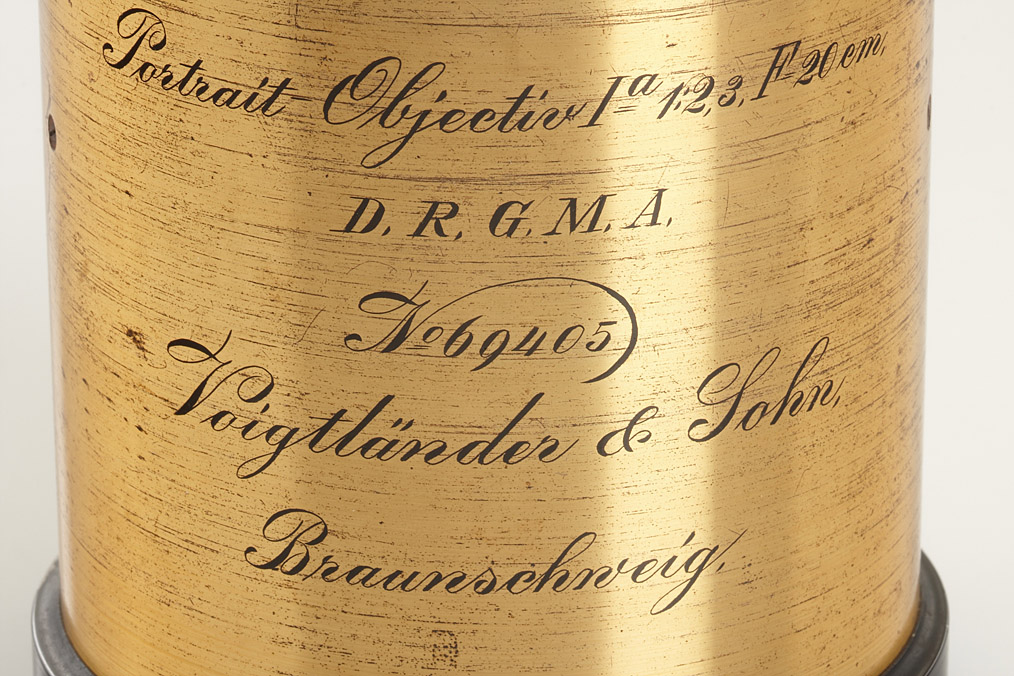 Portrait Objectiv Iª 1:2,3, F=20 cm,
D. R. G. M. A.
No 69405
Voigtländer & Sohn,
Braunschweig,